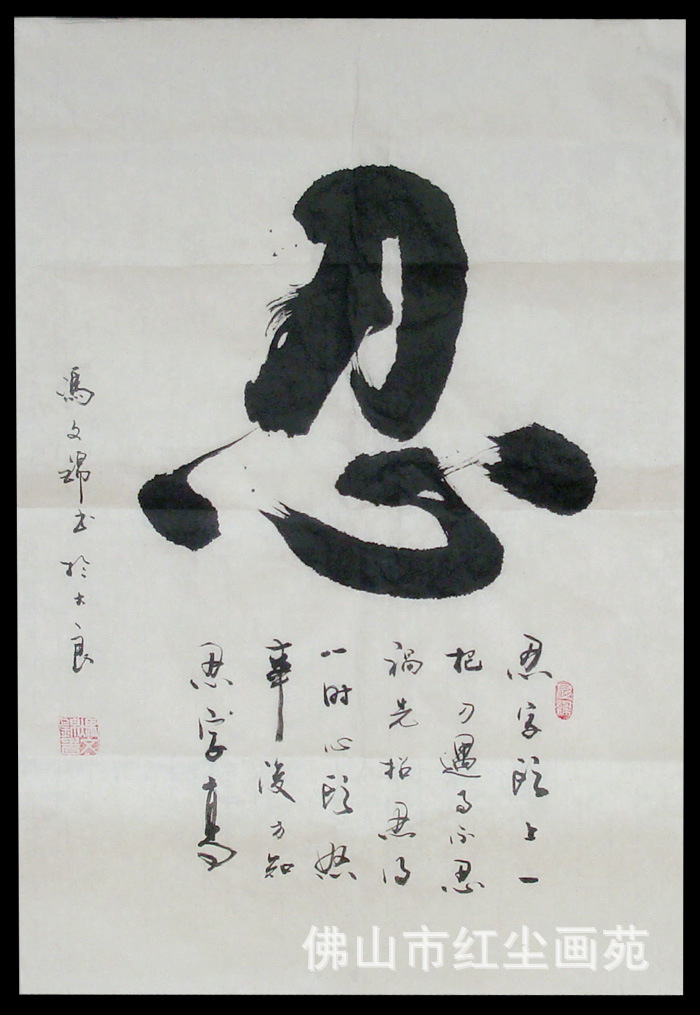 忍
忍字頭上一
把刀遇事不忍
禍先招忍得
一时心頭怒
事後方知
忍字高
馮文瑞书於大良
佛山市红尘画苑